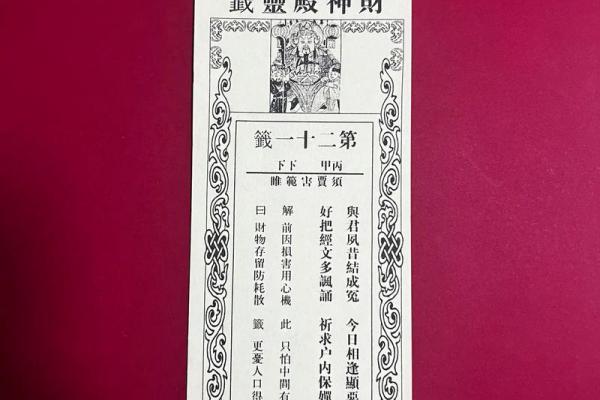 財神殿靈籤
第二十一籤
丙甲 下下
須賈害範雎
與君夙昔結成冤 今日相逢顯惡
好把經文多諷誦 祈求户內保嬋
解 前因損害用心機 此 只怕中間有
曰 財物存留防耗散 籤 更憂人口得